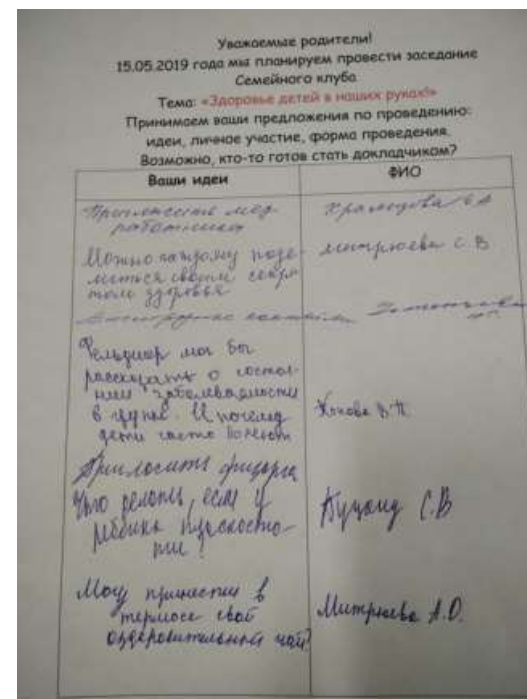 Уважаемые родители!
15.05.2019 года мы планируем провести заседание
Семейного клуба
Тема: «Здоровье детей в наших руках!»
Принимаем ваши предложения по проведению:
идеи, личное участие, форма проведения.
Возможно, кто-то готов стать докладчиком?
Ваши идеи ФИО
Приглашение мед
работника
Можно каждому поде-
литься своим секре-
том здоровья
Митрюева С. В
Фельдшер мог бы
рассказать о состоя-
нии заболеваемости
в группе. И почему
дети часто болеют
Конова В. П.
Пригласить физорга
Что делать, если у
ребёнка плоскосто-
пие?
С. В
Могу принести в
термосе свой
оздоровительный чай?
Митрюева А. О.